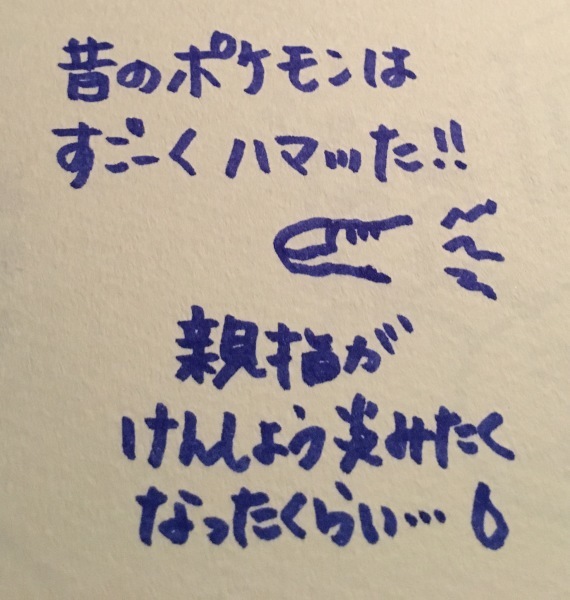 昔のポケモンは
すごーくハマッた!!
親指が
けんしょう炎みたく
なったくらい…